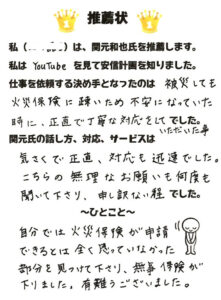 推薦状
私（　　）は、関元和也氏を推薦します。
私は YouTube を見て安信計画を知りました。
仕事を依頼する決め手となったのは 被災しても
火災保険に疎いため不安になっていた
時に、正直で丁寧な対応をして
いただいた事
でした。
関元氏の話し方、対応、サービスは
気さくで正直、対応も迅速でした。
こちらの無理なお願いも何度も
聞いて下さり、申し訳ない程 でした。
〜ひとこと〜
自分では火災保険が申請
できるとは全く思っていなかった
部分を見つけて下さり、無事保険が
下りました。有難うございました。